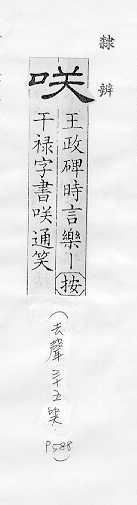 隸辨
咲
王政碑時言樂丨按
干祿字書咲通笑
(去聲三十五笑
P588)